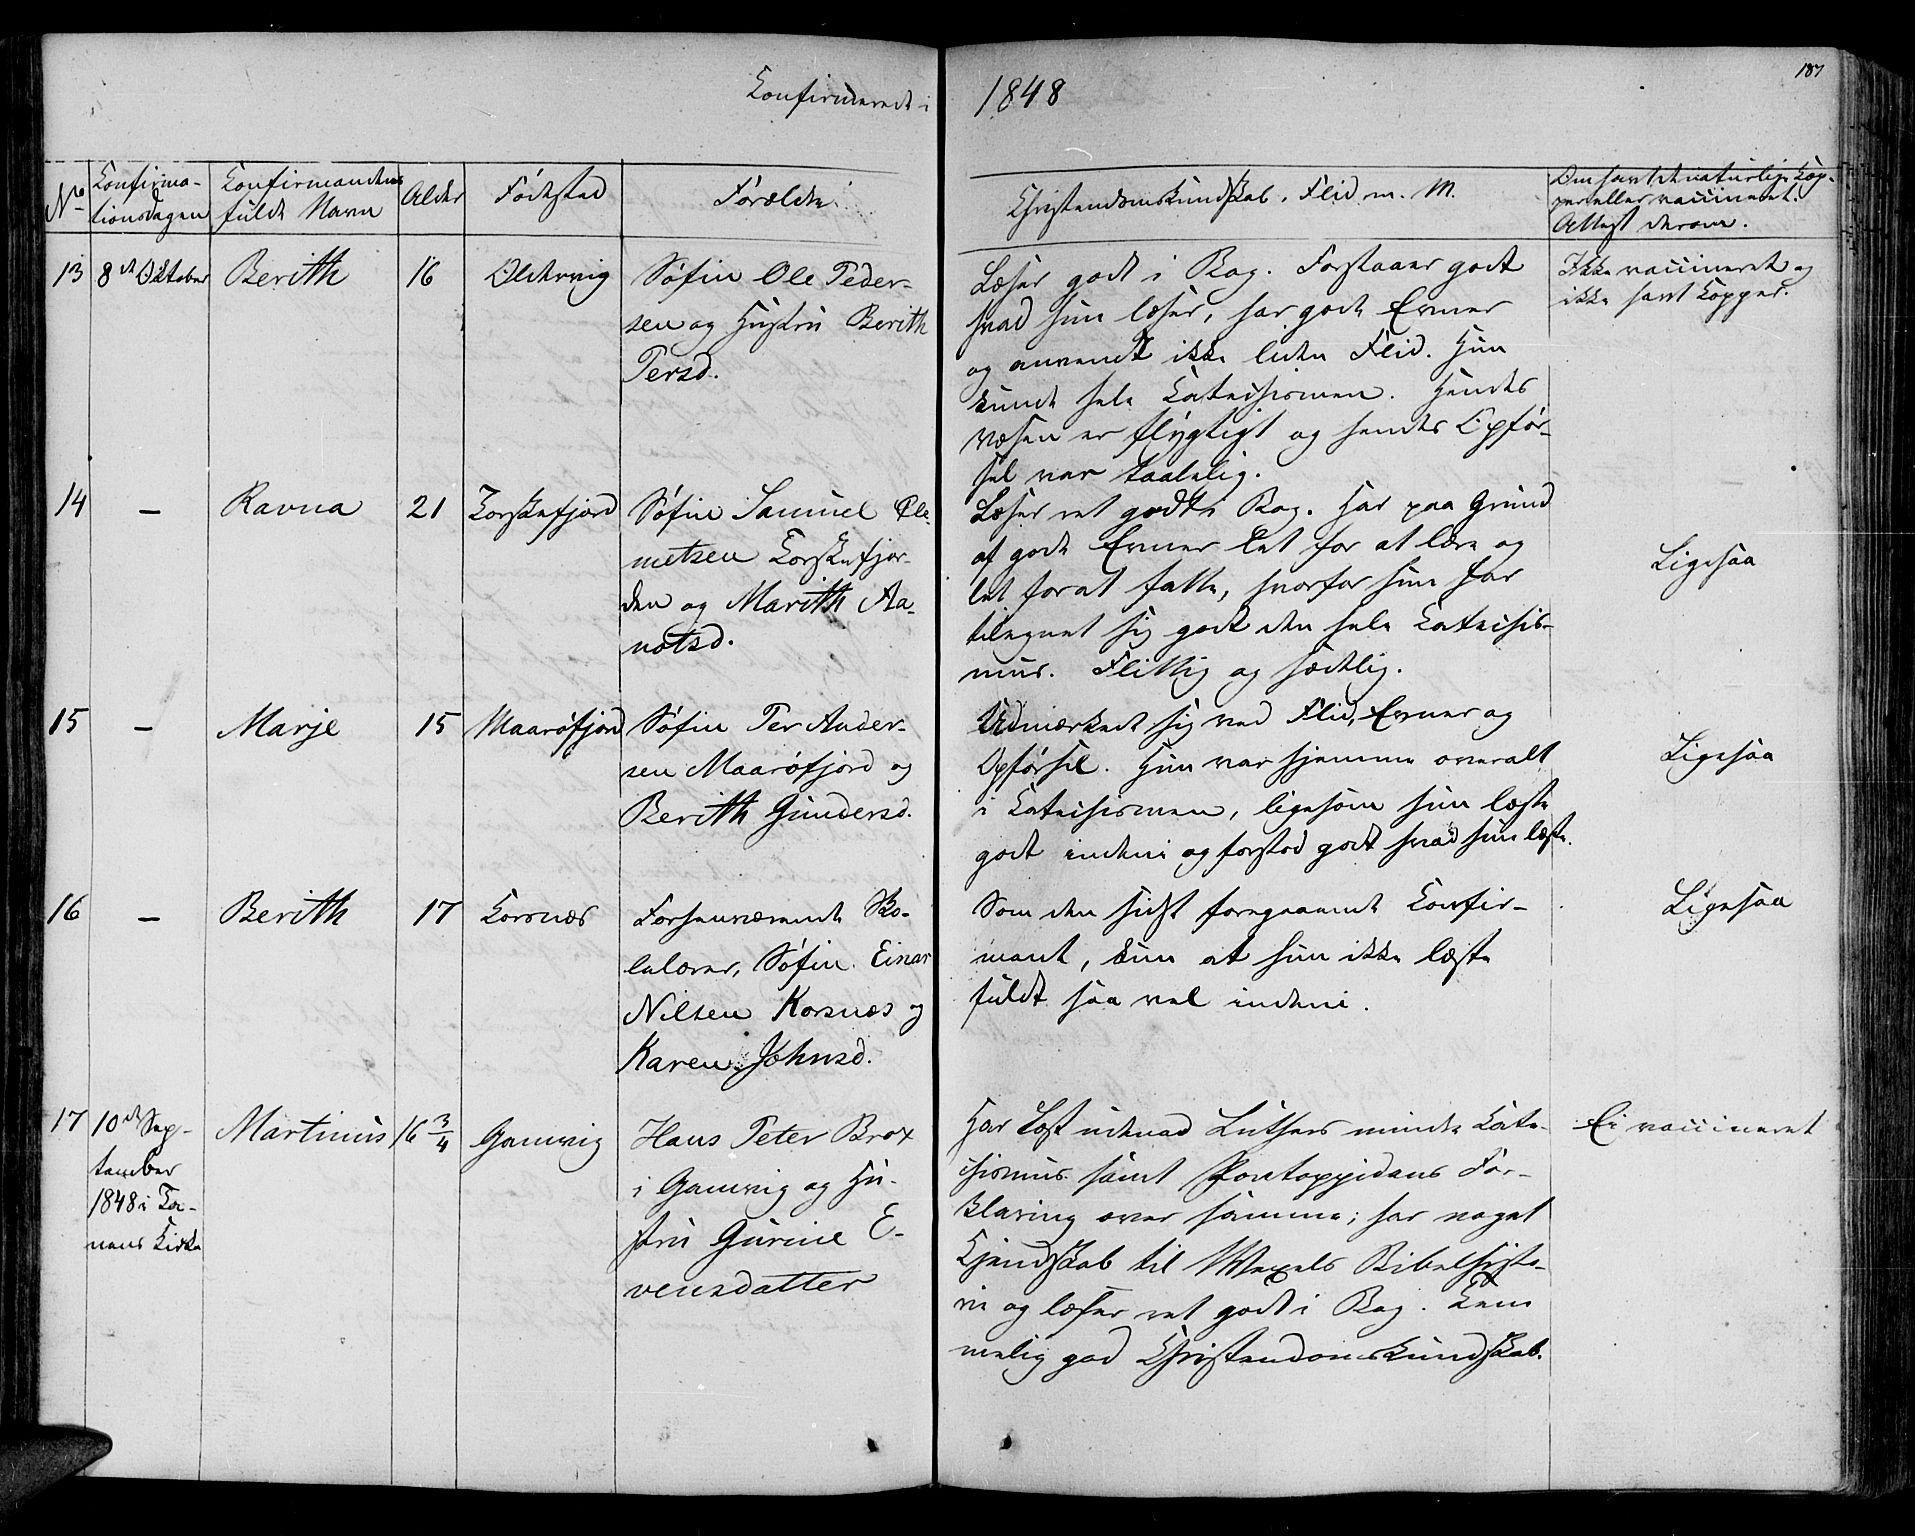 Confirmerede i 1848
187
No
Confirma-
tionsdagen
Confirmandens
fulde Navn
Alder
Fødested
Forældre
Christendomskundskab, Flid m. M.
Om havt de naturlige Kop-
per eller vaccineret.
Attest derom.
13
8de Oktober
Berith
16
Olderviig
Søfin Ole Peder-
sen og Hustru Berith
Persd.
Læser godt i Bog. Forstaaer godt
hvad hun læser, har gode Evner
og anvendt ikke liden Flid. Hun
kunde hele Catechismen. Hendes
Væsen er flygtigt og hendes Opfør-
sel var taalelig.
Ikke vaccineret og
ikke havt Kopper.
14
–
Ravna
21
Torskefjord
Søfin Samuel Cle-
metsen Torskefjor-
den og Marith Aa-
notsd.
Læser ret godt i Bog. Har paa Grund
af gode Evner let for at lære og
let for at fatte, hvorfor hun har
tilegnet sig godt den hele Catechis-
mus. Flittig og sædelig.
Ligesaa
15
–
Marje
15
Maarøfjord
Søfin Per Ander-
sen Maarøfjord og
Berith Gundersd.
Udmærkede sig ved Flid, Evner og
Opførsel. Hun var hjemme overalt
i Catechismen, ligesom hun læste
godt indeni og forstod godt hvad hun læste.
Ligesaa
16
–
Berith
17
Korsnæs
Forhenværende Sko-
lelærer, Søfin Einar
Nilsen Korsnæs og
Karen Johnsd.
Som den sidst foregaaende Confir-
mant, kun at hun ikke læste
fuldt saa vel indeni.
Ligesaa
17
10de Sep-
tember
1848 i
Kirke
Martinus
16 3/4
Gamvig
Hans Peter Brox
i Gamvig og Hu-
stru Gurine E-
vensdatter
Har læst udenad Luthers mindre Cate-
chismus samt Pontoppidans For-
klaring over samme; har noget
Kjendskab til Wexels Bibelhisto-
rie og læser ret godt i Bog. Tem
melig god Christendomskundskab.
Ei vaccineret